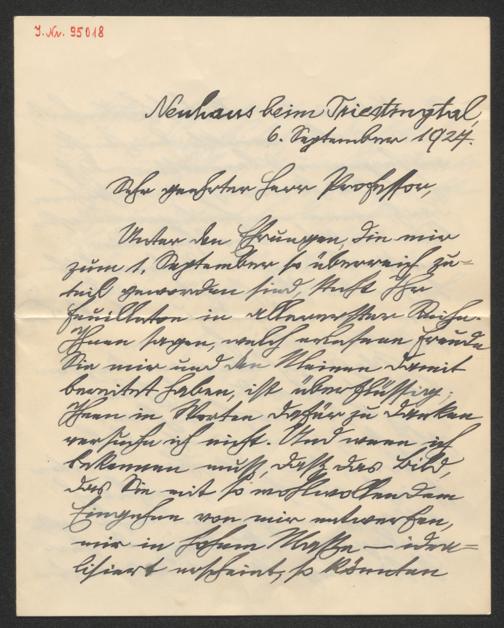 J. Nr. 95018
Neuhaus beim Triestingtal,
6. September 1924.
Sehr geehrter Herr Professor,
Unter den Ehrungen, die mir
zum 1. September so überreich zu-
teil geworden sind, steht Ihr
Feuilleton in allererster Reihe.
Ihnen sagen, welch erlesene Freude
Sie mir und den Meinen damit
bereitet haben, ist überflüssig;
Ihnen in Worten dafür zu danken
versuche ich nicht. Und wenn ich
bekennen muß, daß das Bild,
das Sie mit so wohlwollendem
Eingehen von mir entwerfen,
mir in hohem Maße — idea-
lisiert erscheint, so könnten